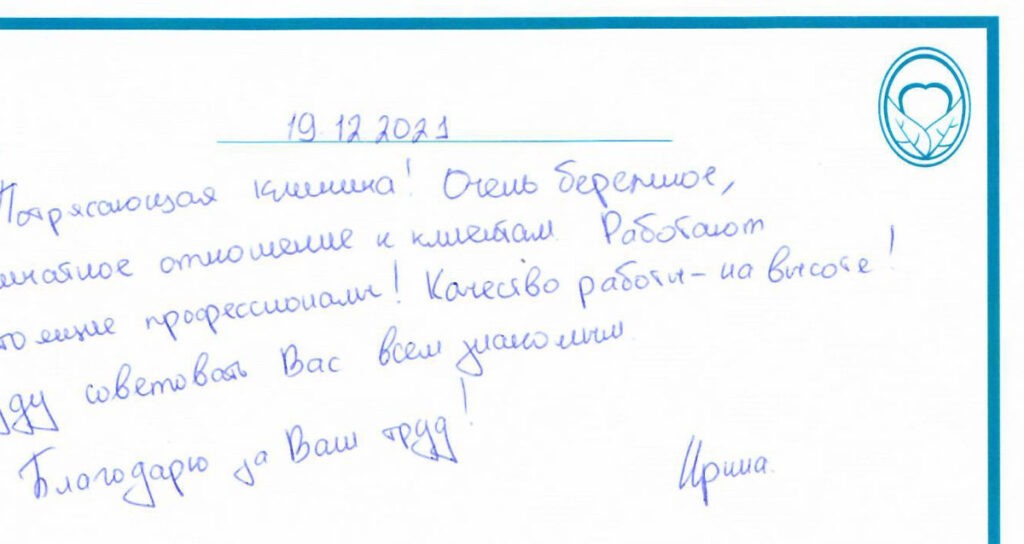 19.12.2021
Потрясающая клиника! Очень бережное,
отношение к клиентам. Работают
профессионалы! Качество работы - на высоте!
советовать Вас всем знакомым.
Благодарю за Ваш труд!
Ирина.